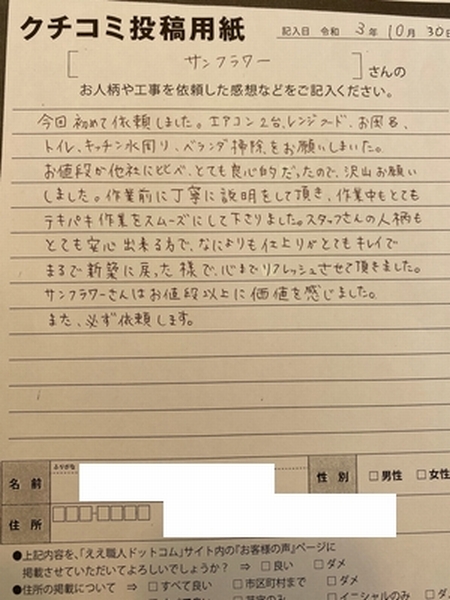 クチコミ投稿用紙
記入日 令和 3年 10月 30日
[ サンフラワー ] さんの
お人柄や工事を依頼した感想などをご記入ください。
今回初めて依頼しました。エアコン2台、レンジフード、お風呂、
トイレ、キッチン水周り、ベランダ掃除をお願いしまいた。
お値段が他社にくらべ、とても良心的だったので、沢山お願い
しました。作業前に丁寧に説明をして頂き、作業中もとても
テキパキ作業をスムーズにして下さりました。スタッフさんの人柄も
とても安心出来る方で、なによりも仕上りがとてもキレイで
まるで新築に戻った様で、心までリフレッシュさせて頂きました。
サンフラワーさんはお値段以上に価値を感じました。
また、必ず依頼します。
ふりがな
名前
性別 □男性 □女性
住所
●上記内容を、「ええ職人ドットコム」サイト内の『お客様の声』ページに
掲載させていただいてよろしいでしょうか？ ⇒ □良い □ダメ
●住所の掲載について ⇒ □すべて良い □市区町村まで □ダメ
□イニシャルのみ □ダ